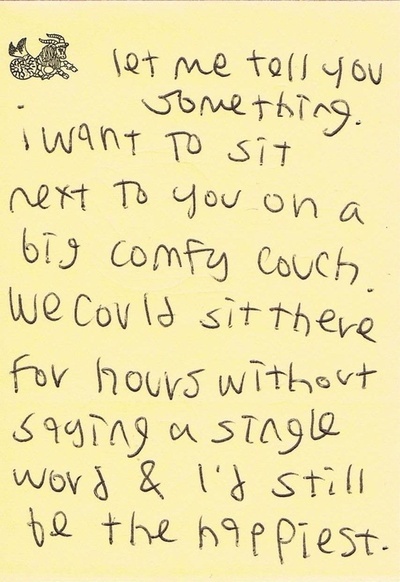 let me tell you
something.
i want to sit
next to you on a
big comfy couch.
we could sit there
for hours without
saying a single
word & I'd still
be the happiest.